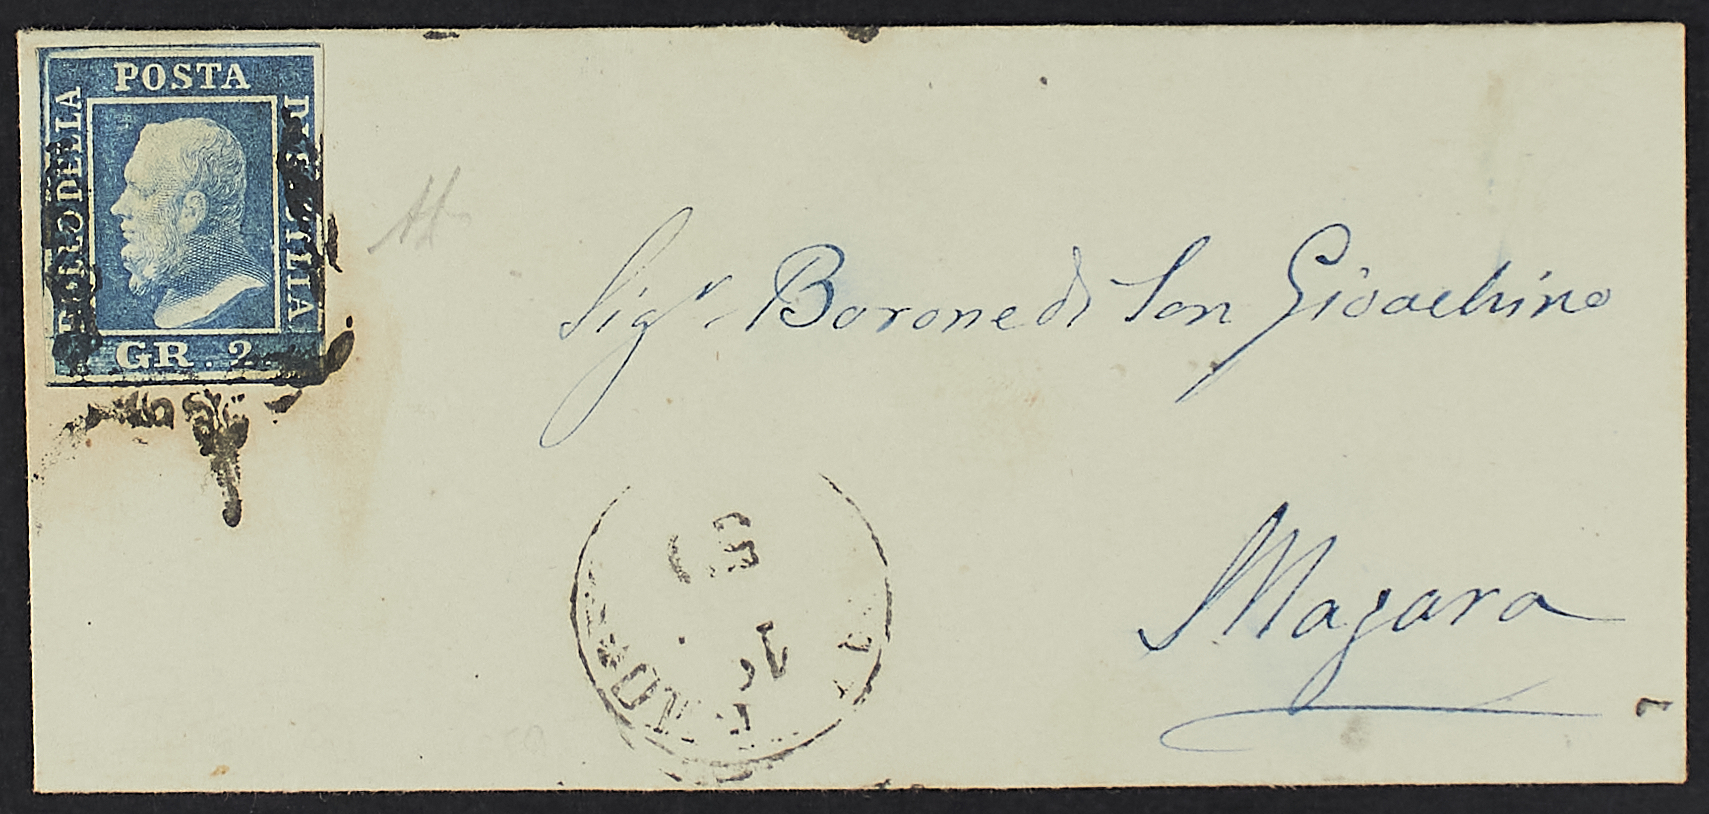 POSTA
BOLLO DELLA
DI SICILIA
GR. 2.
Sigr. Barone di San Gioachino
Magara